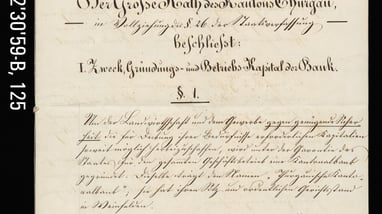 2'31'059-B, 125
Der Große Rath des Kantons Thurgau,
in Vollziehung des § 26 der Staatsverfassung
beschließt:
I. Zweck, Gründungs- und Betriebs-Kapital der Bank.
§ 1.
Um der Landwirthschaft und dem Gewerbe gegen genügende Sicher-
heit die für Deckung ihrer Bedürfnisse erforderlichen Kapitalien
soweit möglich herbeizuschaffen, wird unter der Garantie des
Staates für den gesamten Geschäftsbetrieb eine Kantonalbank
gegründet. Dieselbe trägt den Namen „Thurgauische Kanto-
nalbank"; sie hat ihren Sitz und ordentlichen Gerichtsstand
in Weinfelden.